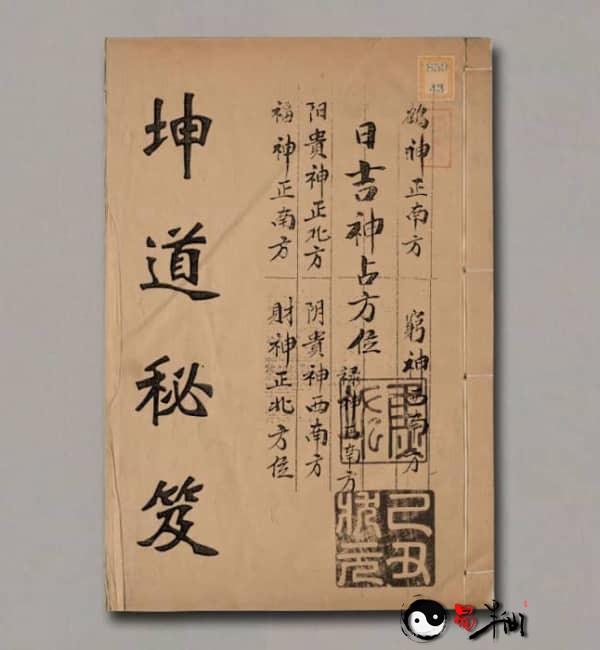 鶴神正南方
窮神西南方
日吉神占方位
禄神正南方
阳貴神正北方
阴貴神西南方
福神正南方
財神正北方位
坤道秘笈
己丑
狀元
易半仙